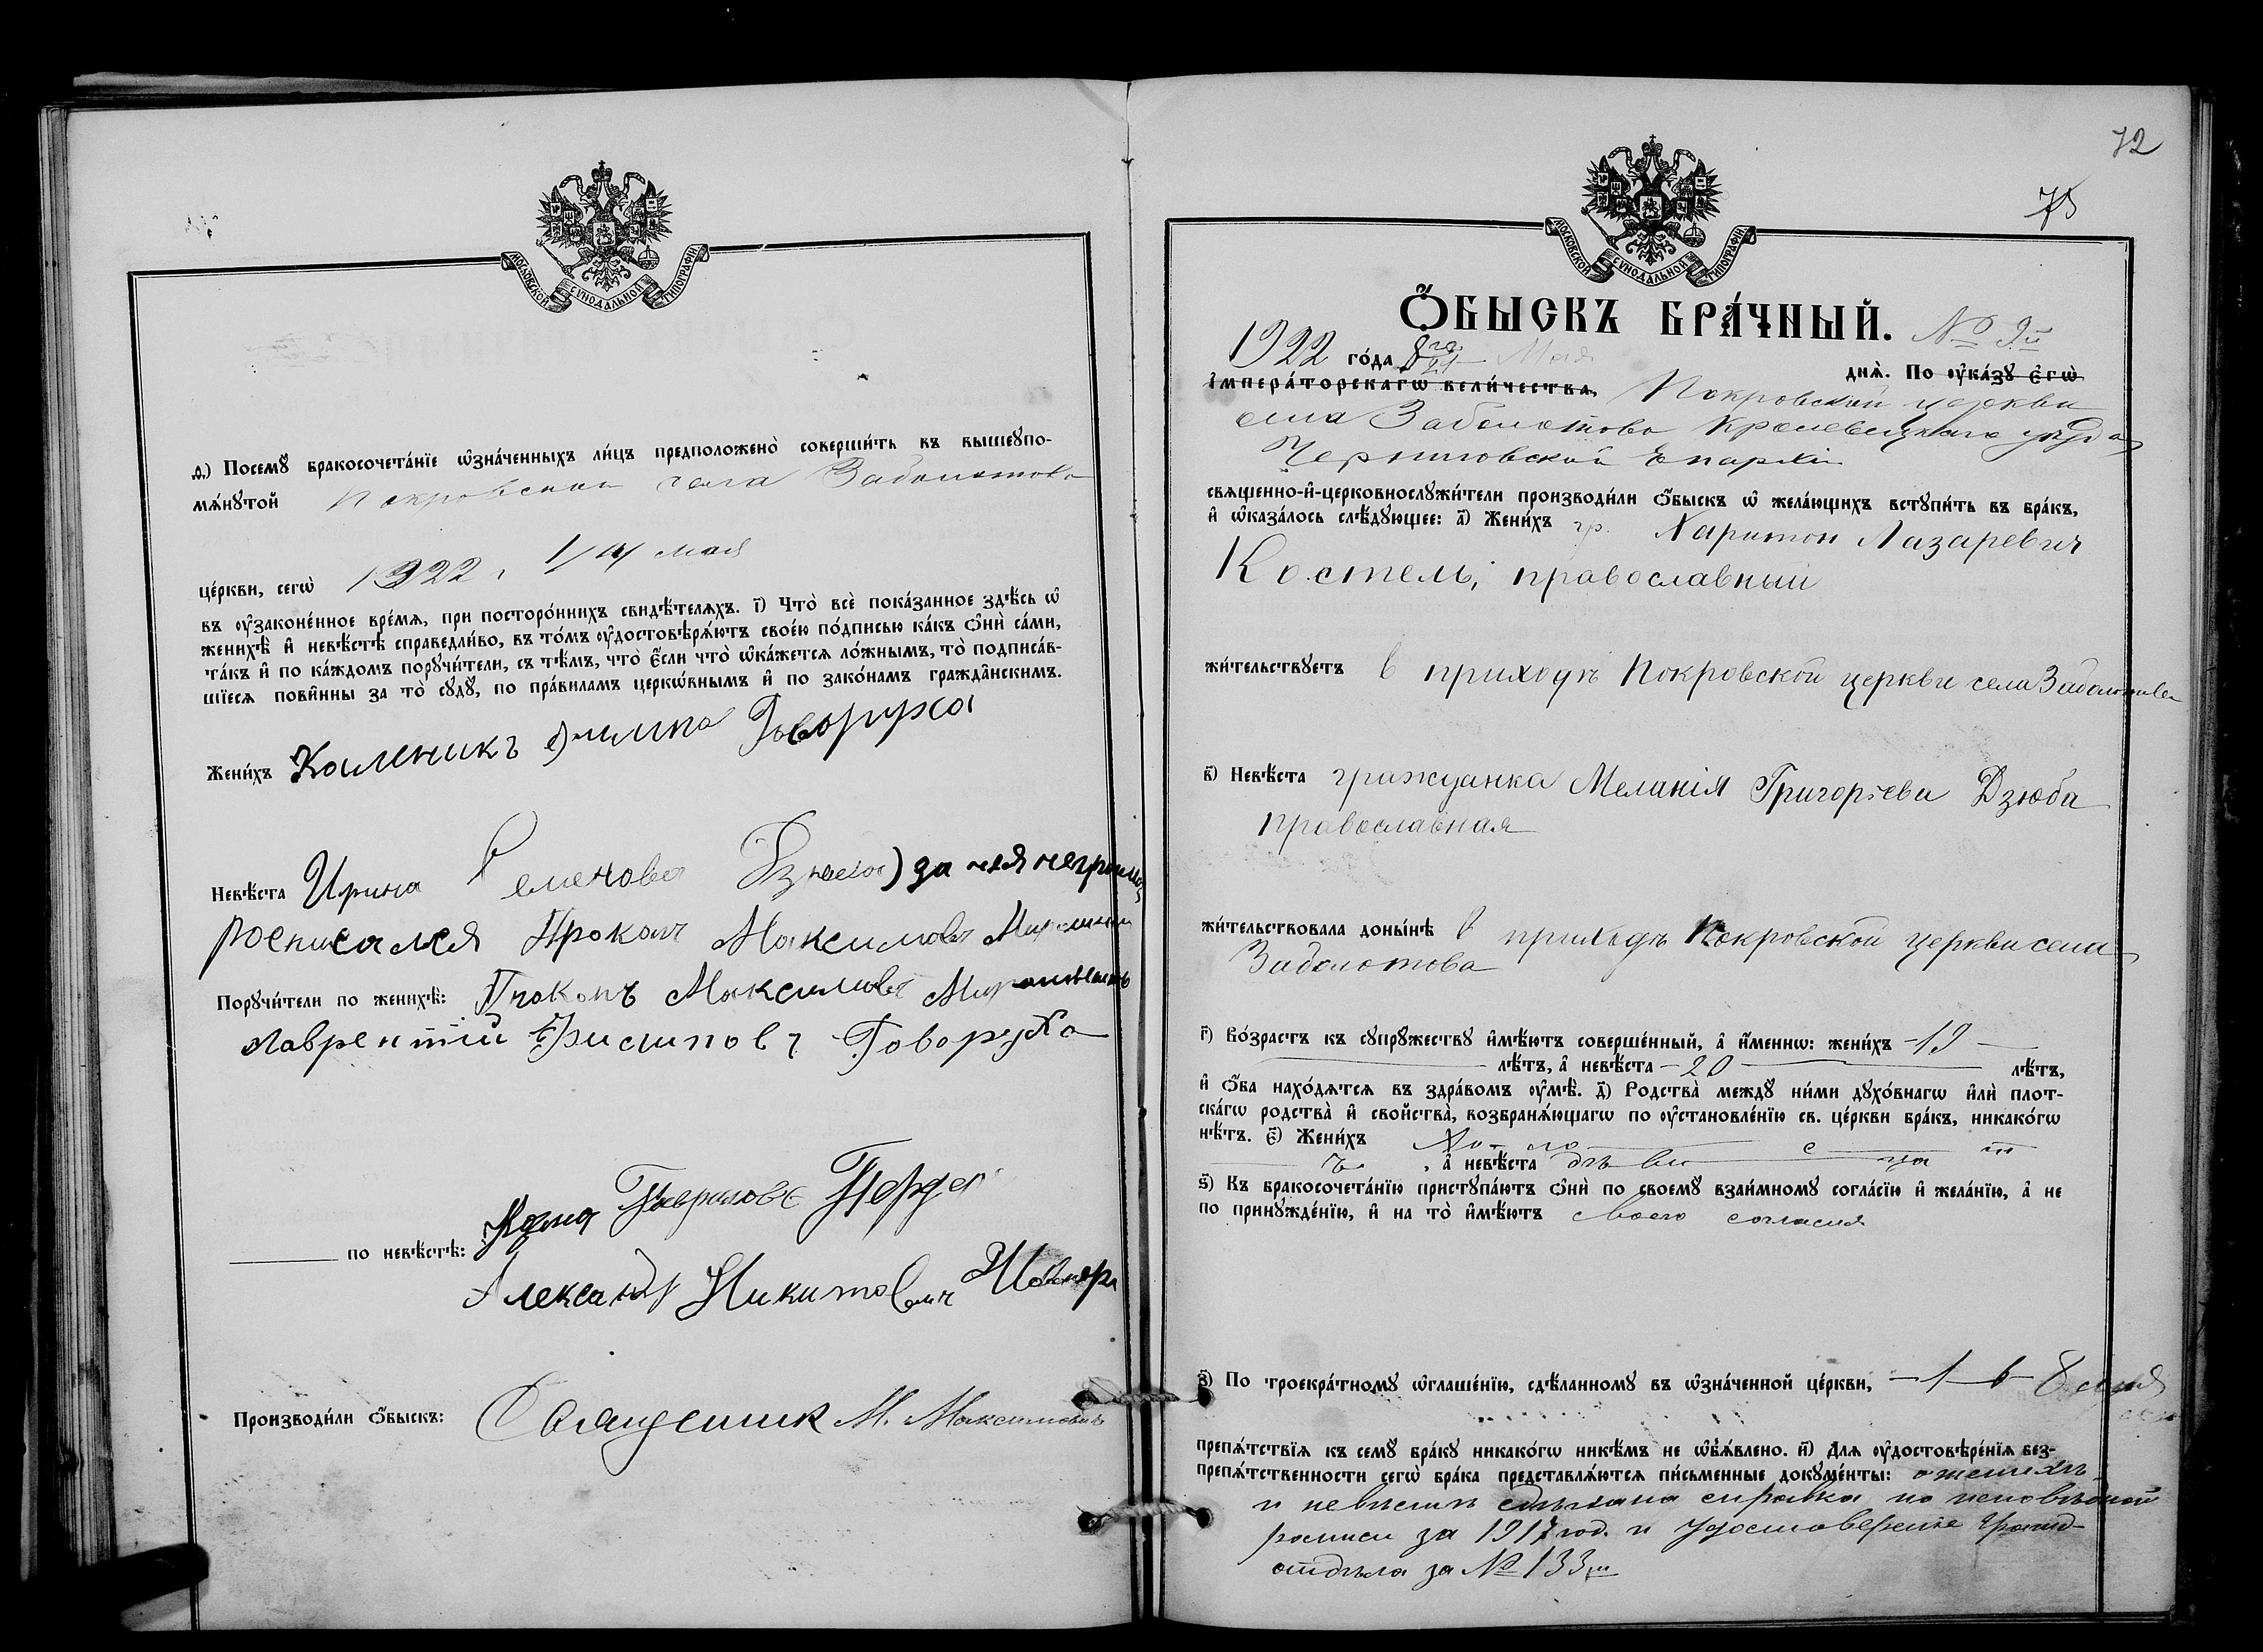 МОСКОВСКОЙ СѴНОДАЛЬНОЙ ТИПОГРАФІИ
ѳ҃) Посемꙋ̀ бракосочета́нїе ѡ҆зна́ченныхъ ли́цъ предположено̀ соверши́ть въ вышеꙋпо-
мѧ́нꙋтой Покровской села Заболотова
це́ркви, сегѡ̀ 1922 г. 1/14 мая
въ ᲂу҆законе́нное вре́мѧ, при посторо́ннихъ свидѣ́телѧхъ. і҃) Что̀ всѐ пока́занное здѣ́сь ѡ҆
женихѣ̀ и҆ невѣ́стѣ справедли́во, въ то́мъ ᲂу҆достовѣрѧ́ютъ свое́ю по́дписью ка́къ ѻ҆нѝ са́ми,
та́къ и҆ по ка́ждомъ порꙋчи́тели, съ тѣ́мъ, что̀ є҆́сли что̀ ѡ҆ка́жетсѧ ло́жнымъ, то̀ подписа́в-
шїесѧ пови́нны за то̀ сꙋдꙋ̀, по пра́виламъ церко́внымъ и҆ по зако́намъ гражда́нскимъ.
Жени́хъ Каленикъ Говоруха
Невѣ́ста Ирина Семенова за нея неграмот
росписался Прокопъ Максимовъ
Порꙋчи́тели по женихѣ̀: Прокопъ Максимовъ
Лаврентий Филиповъ Говоруха
по невѣ́стѣ: Гаврилове
Александр Никитович
Производи́ли ѻ҆́быскъ: Священник М. Максимовичъ
72
75
МОСКОВСКОЙ СѴНОДАЛЬНОЙ ТИПОГРАФІИ
Ѻ҆́БЫСКЪ БРА́ЧНЫЙ. № 9й
1922 го́да 8го/21 Мая днѧ̀. По ᲂу҆ка́зꙋ є҆гѡ̀
и҆мпера́торскагѡ вели́чества, Покровской церкви
села Заболотова Кролевецкаго уѣзда
Черниговской Епархіи
свѧще́нно-и҆-церковнослꙋжи́тели производи́ли ѻ҆́быскъ ѡ҆ жела́ющихъ встꙋпи́ть въ бра́къ,
и҆ ѡ҆каза́лось слѣ́дꙋющее: а҃) Жени́хъ гр. Харитон Лазаревич
Костель, православный
жи́тельствꙋетъ в приходѣ Покровской церкви села Заболотова
в҃) Невѣ́ста гражданка Меланія Григорьева Дзюба
православная
жи́тельствовала доны́нѣ в приходѣ Покровской церкви села
Заболотова
г҃) Во́зрастъ къ сꙋпрꙋ́жествꙋ и҆мѣ́ютъ соверше́нный, а҆ и҆́меннѡ: жени́хъ -19-
лѣ́тъ, а҆ невѣ́ста -20- лѣ́тъ,
и҆ ѻ҆́ба нахо́дѧтсѧ въ здра́вомъ ᲂу҆мѣ̀. д҃) Родства̀ междꙋ̀ ни́ми дꙋхо́внагѡ и҆лѝ плот-
ска́гѡ родства̀ и҆ свойства̀, возбранѧ́ющагѡ по ᲂу҆становле́нїю св. це́ркви бра́къ, никако́гѡ
нѣ́тъ. є҃) Жени́хъ Хо - ло - с - т
ъ, а҆ невѣ́ста дѣ ви ца
ѕ҃) Къ бракосочета́нїю пристꙋпа́ютъ ѻ҆нѝ по своемꙋ̀ взаи́мномꙋ согла́сїю и҆ жела́нїю, а҆ не
по принꙋжде́нїю, и҆ на то̀ и҆мѣ́ютъ своего согласия
з҃) По троекра́тномꙋ ѡ҆глаше́нїю, сдѣ́ланномꙋ въ ѡ҆зна́ченной це́ркви, -1-6-8
препѧ́тствїѧ къ семꙋ̀ бра́кꙋ никако́гѡ никѣ́мъ не ѡ҆б̾ѧ́влено. и҃) Длѧ ᲂу҆достовѣре́нїѧ без-
препѧ́тственности сегѡ̀ бра́ка представлѧ́ютсѧ пи́сьменные докꙋме́нты: о женихѣ
и невѣстѣ сдѣлана справка по исповѣдной
росписи за 1917 год. и удостоверенie
отдѣла за № 133м